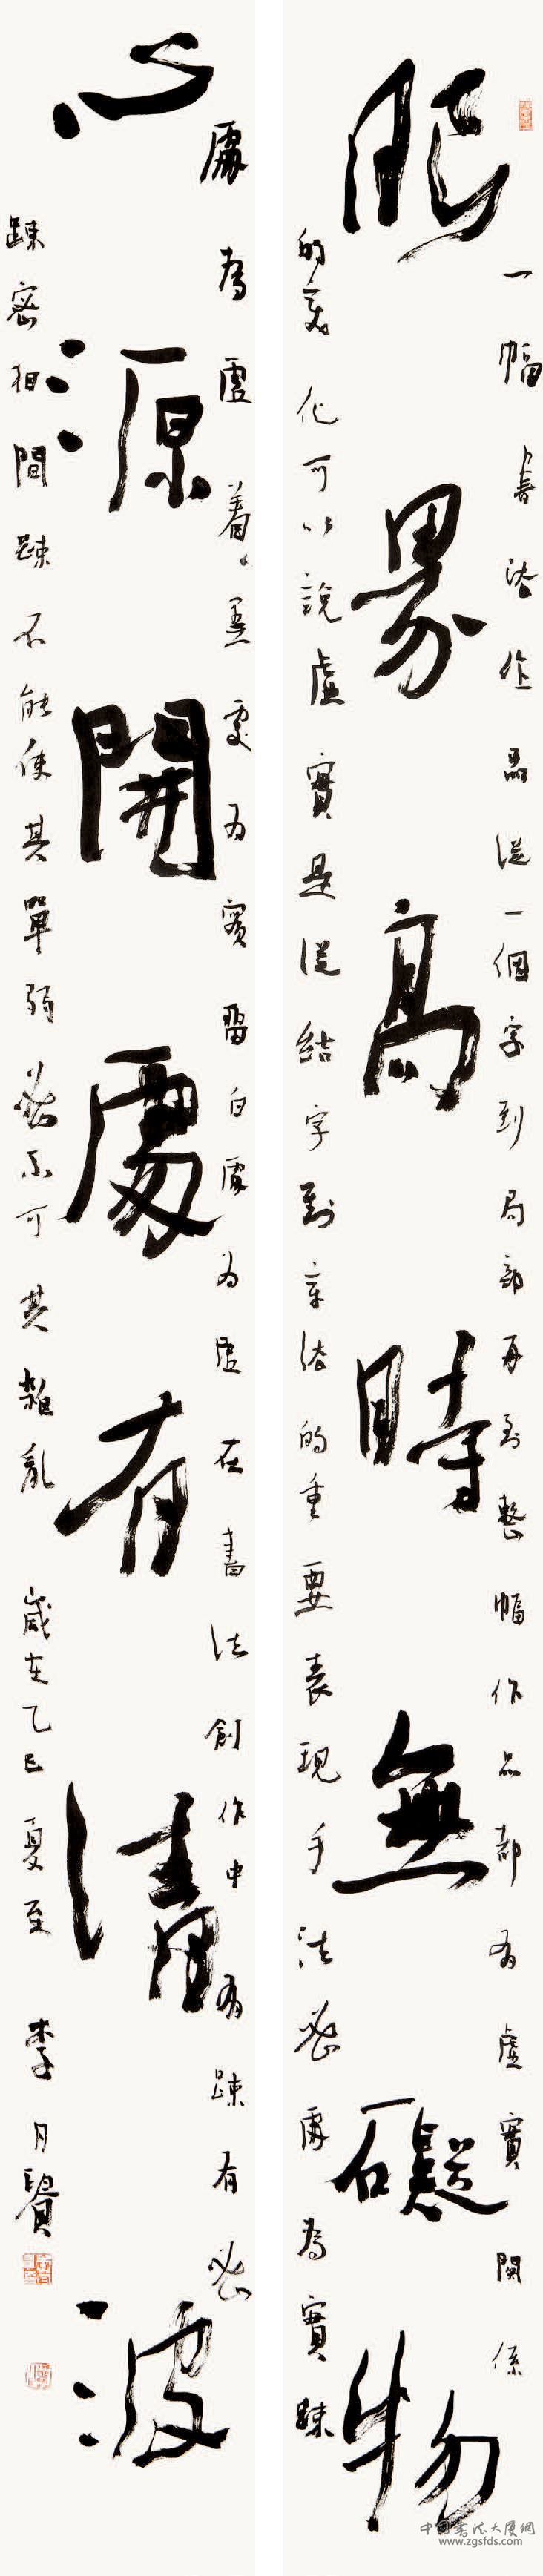 眼界高時無礙物
一幅書法作品從一個字到局部再到整幅作品都有虛實関係
的变化可以說虛實是從結字到章法的重要表現手法密處為實踈
心源開處有清波
處為虛着墨處为實留白處为虛在書法創作中有踈有密
踈密相間踈不能使其單弱密不可其雜亂
歲在乙巳夏至
李月賢
中国書法大厦網
www.zgsfds.com